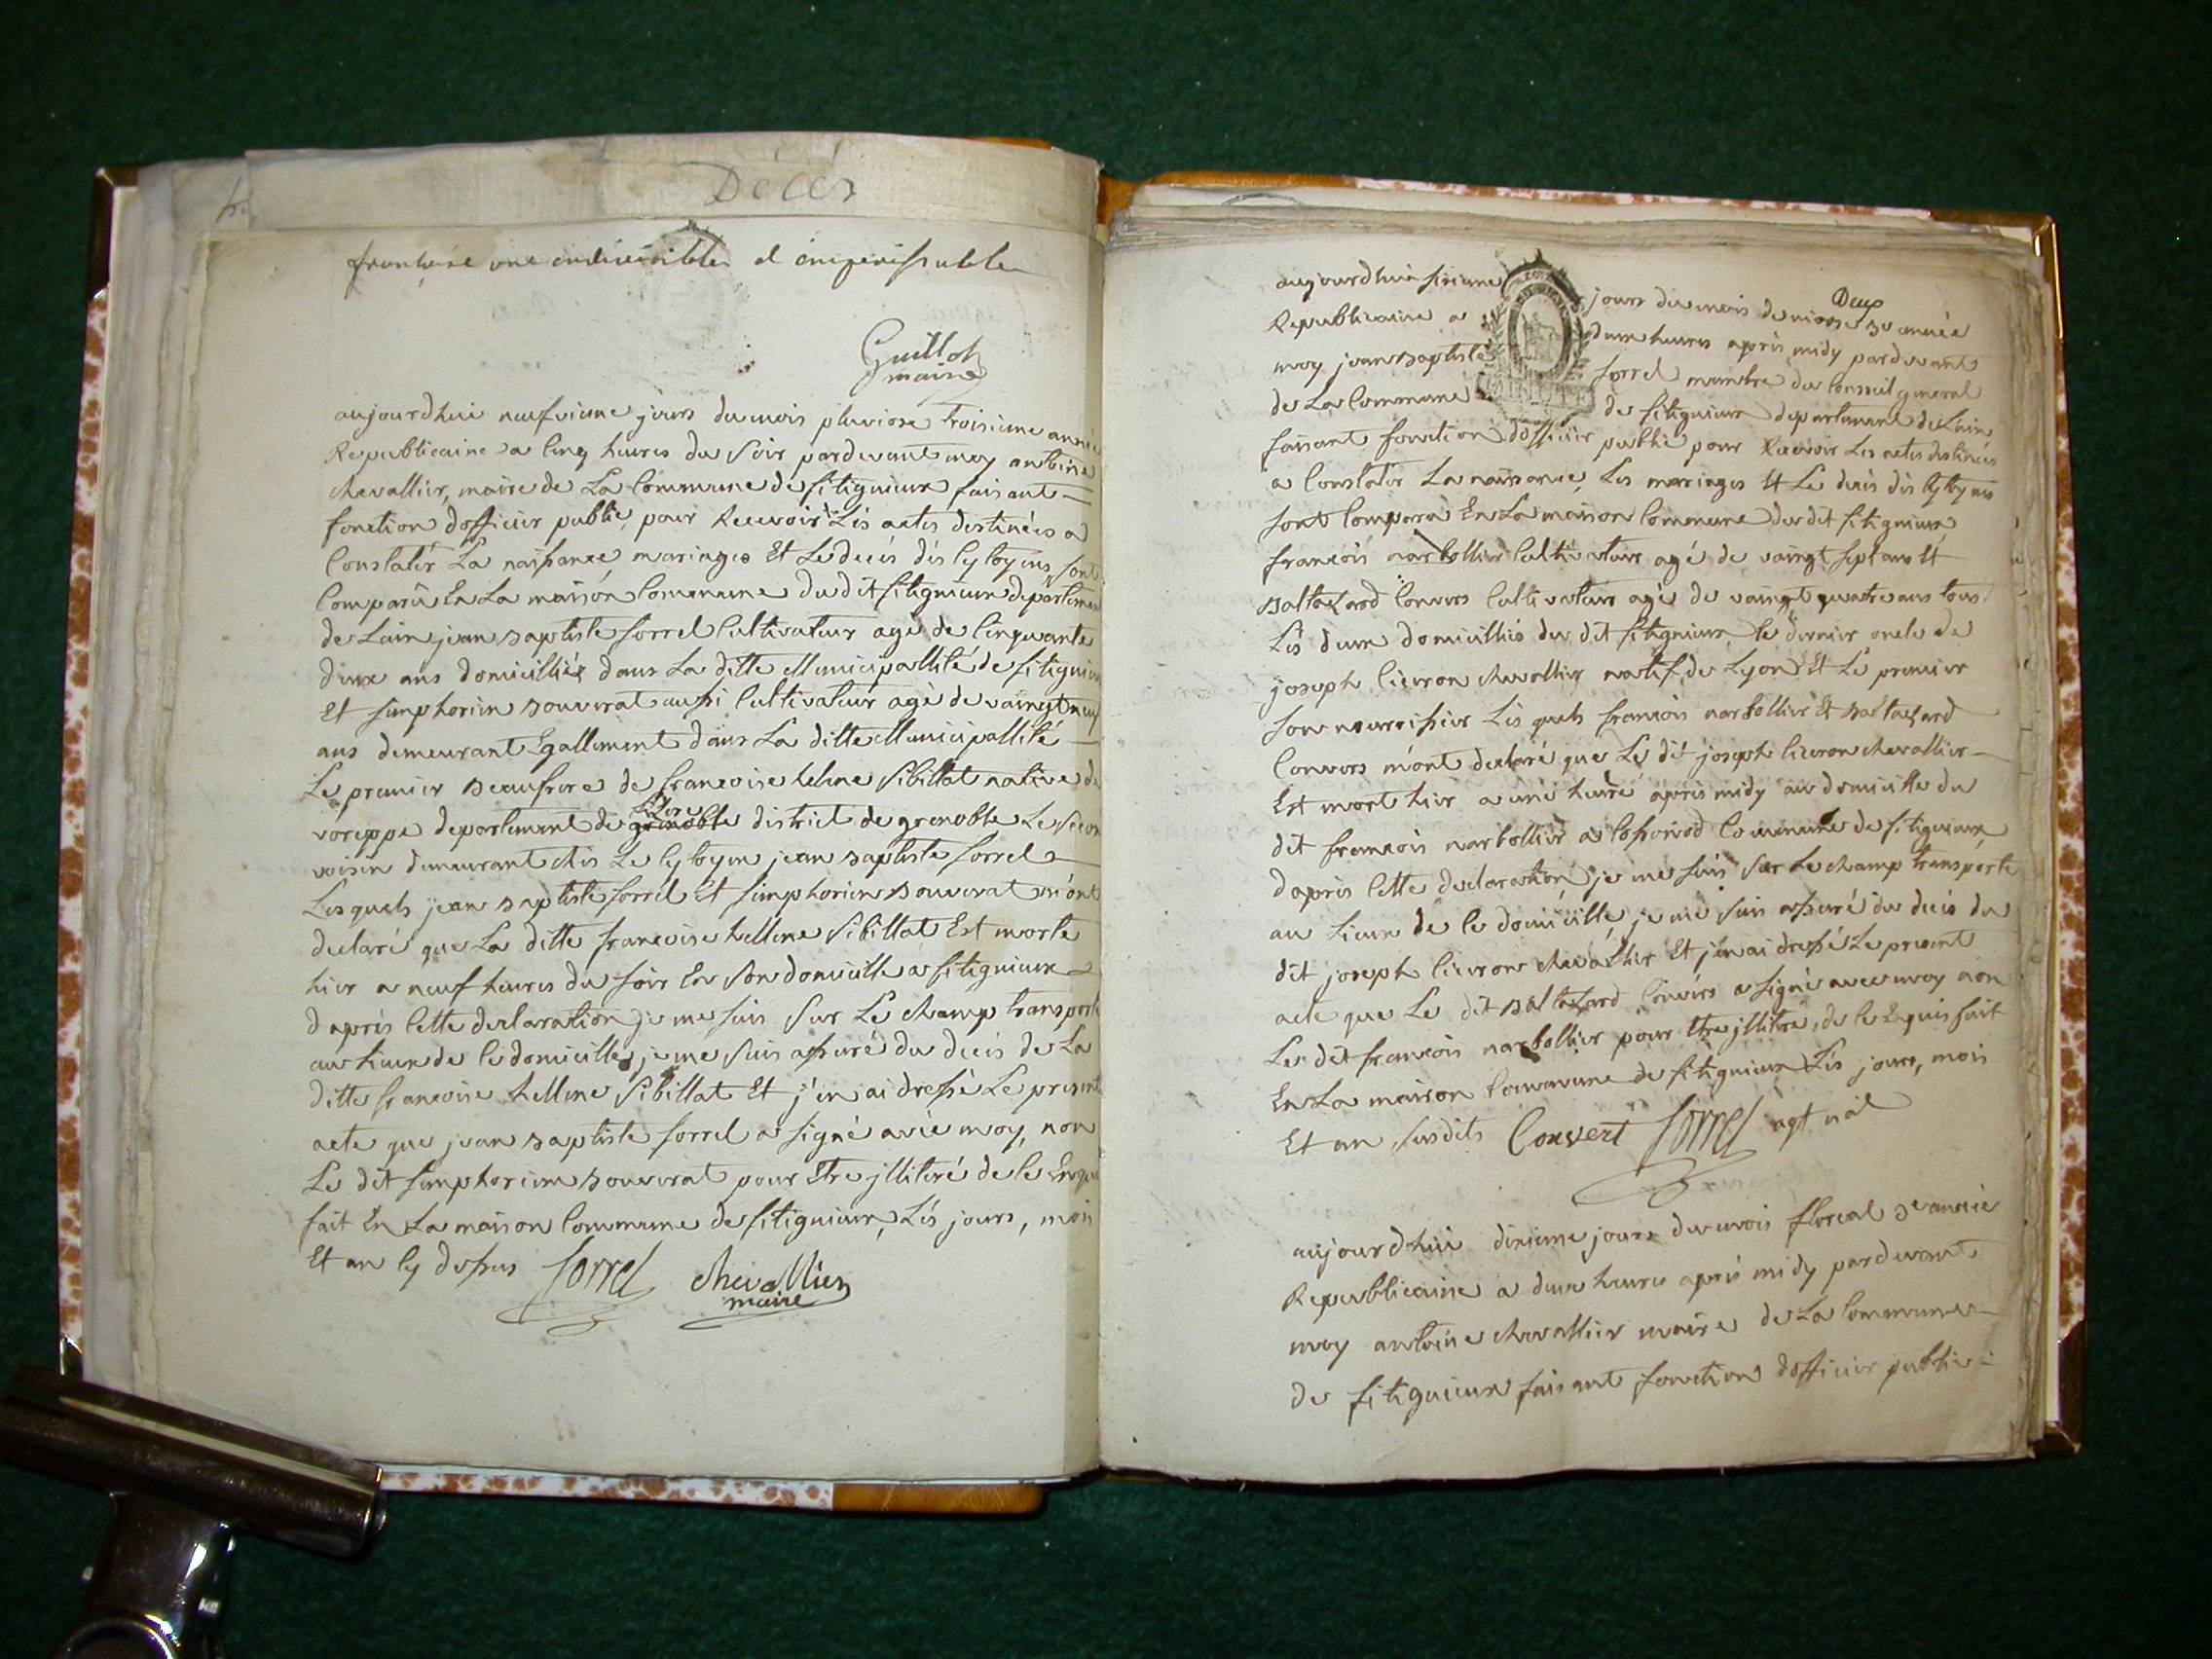 Décés
françaisé une indivisible et imperissable
Guillot
maire
aujourdhui neufvieme jours du mois pluviose troisieme année
Republicaine a cinq heures du soir pardevant moy antoine
chevallier, maire de La Commune de fitignieux faisant
fonction dofficier public, pour Recevoir Lés actes destinées a
Constatér La naissance mariages Et Le decés dés Cytoyens sont
Comparû En La maison Commune du dit fitignieux departement
de Lain jean baptiste forrel Cultivateur agé de Cinquante
deux ans domicilliés dans La ditte Municipallité de fitignieux
Et simphorien bouverat aussi Cultivateur agé de vaingt neuf
ans demeurant Egallement dans La ditte Municipallité
Le premier beaufrere de francoise helene Sibillat native de
voreppe departement de grenoble Lizere district de grenoble Le second
voisin demeurant chés Le Cytoyen jean baptiste forrel
Lesquels jean baptiste forrel Et simphorien bouverat m'ont
declaré que La ditte francoise hellene Sibillat Est morte
hier a neuf heures du soir En son domicille a fitignieux
daprés Cette declaration je me suis sur Le champ transporté
au Lieux de Ce domicille, je me suis assuré du decés de La
ditte francoise hellene Sibillat Et j'en ai dressé Le present
acte que jean baptiste forrel a signé avec moy, non
Le dit simphorien bouverat pour Etre jllitéré de Ce Enquis
fait En La maison Commune de fitignieux, Lés jours, mois
Et an Cy dessus forrel chevallier
maire
Deux
aujourdhui sixieme jours du mois de nivose 3e année
Republicaine a deux heures aprés midy pardevant
moy jean baptiste forrel membre du Conseil general
de La Commune de fitignieux departement de Lain
faisant fonction dofficier public pour Recevoir Les actes destinées
a Constatér La naissance, Les mariages Et Le decés dés Cytoyens
sont Comparû En La maison Commune du dit fitignieux
francois narbollier Cultivateur agé de vaingt sept ans Et
baltazard Convers Cultivateur agé de vaingt quatre ans tous
Lés deux domicilliés du dit fitignieux le dernier oncle de
joseph Cieron chevallier natif de Lyon Et Le premier
son nourissier Lés quels francois narbollier Et baltazard
Convers m'ont declaré que Le dit joseph Cieron chevallier
Est mort hier a une heure aprés midy au domicille du
dit francois narbollier a Commune de fitignieux
daprés Cette declaration, je me suis sur Le champ transporté
au Lieux de Ce domicille, je me suis assuré du decés du
dit joseph Cieron chevallier Et j'en ai dressé Le present
acte que Le dit baltazard Convers a signé avec moy non
Le dit francois narbollier pour Etre jllitéré, de Ce Enquis fait
En La maison Commune de fitignieux Lés jours, mois
Et an susdits Convert forrel agt nal
aujourdhui dixieme jours du mois floreal 3e année
Republicaine a deux heures aprés midy pardevant
moy antoine chevallier maire de La Commune
de fitignieux faisant fonction dofficier public